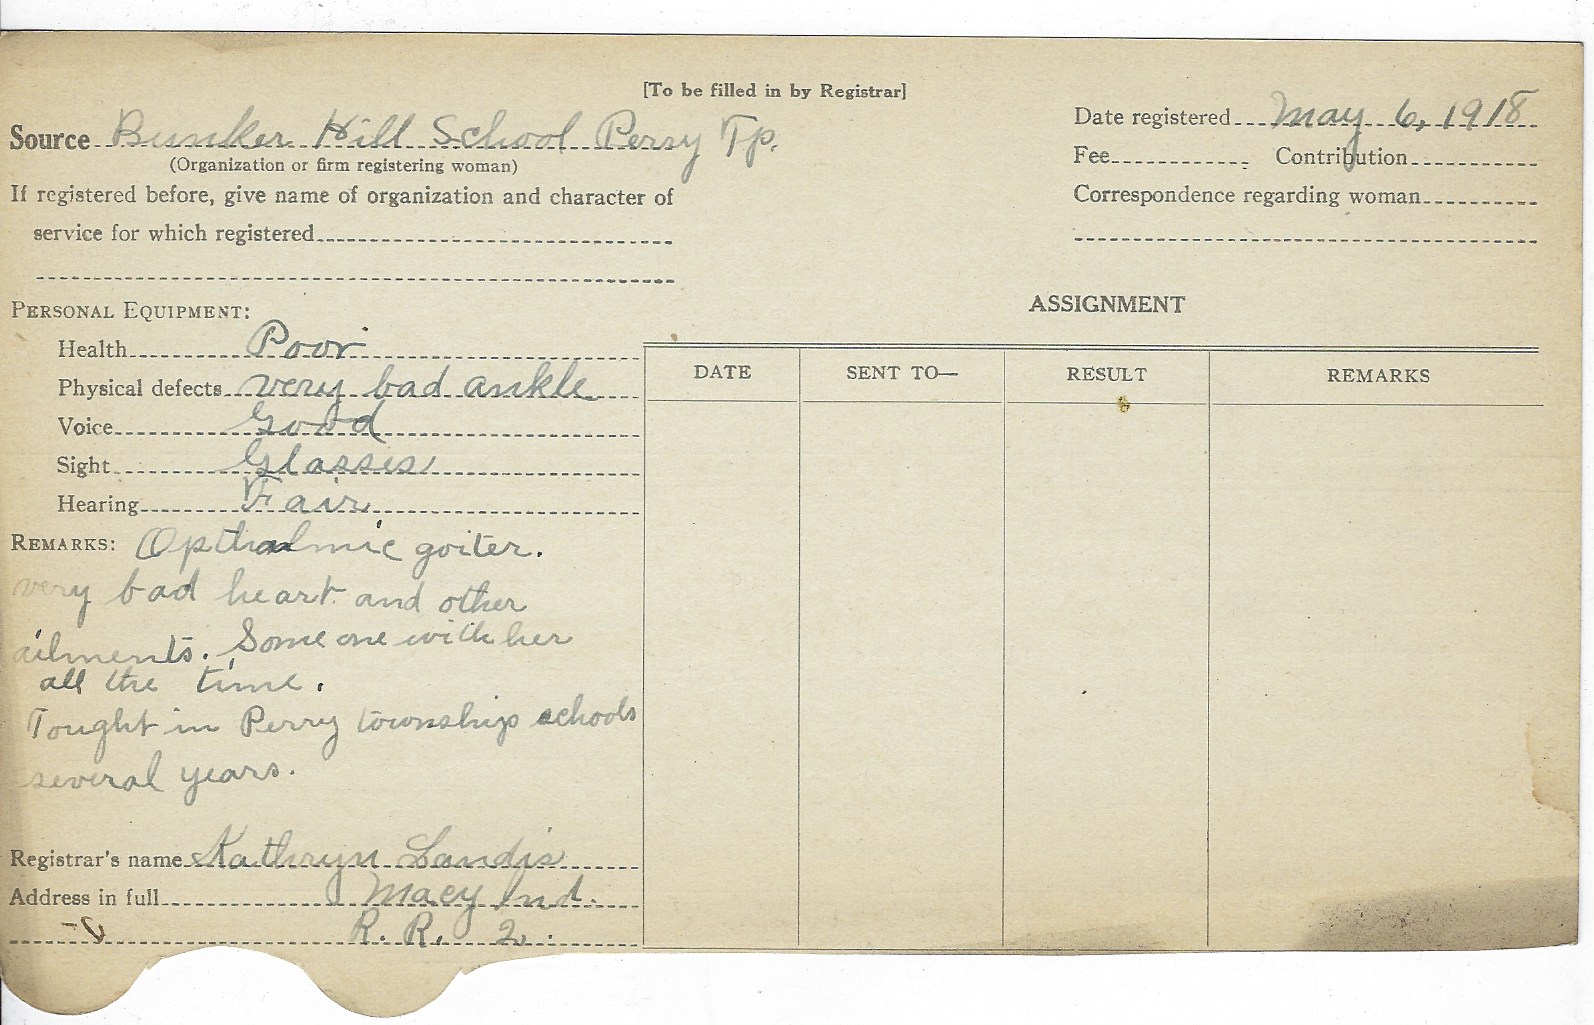 [To be filled in by Registrar]
Source Bunker Hill School Perry Tp.
(Organization or firm registering woman)
If registered before, give name of organization and character of
service for which registered
Date registered May 6, 1918
Fee Contribution
Correspondence regarding woman
PERSONAL EQUIPMENT:
Health Poor
Physical defects very bad ankle
Voice Good
Sight Glasses
Hearing Fair
REMARKS: Opthalmic goiter.
very bad heart and other
ailments. Some one with her
all the time.
Tought in Perry township schools
several years.
Registrar's name Kathryn Landis
Address in full Macy Ind.
R. R. 2.
ASSIGNMENT
DATE SENT TO— RESULT REMARKS